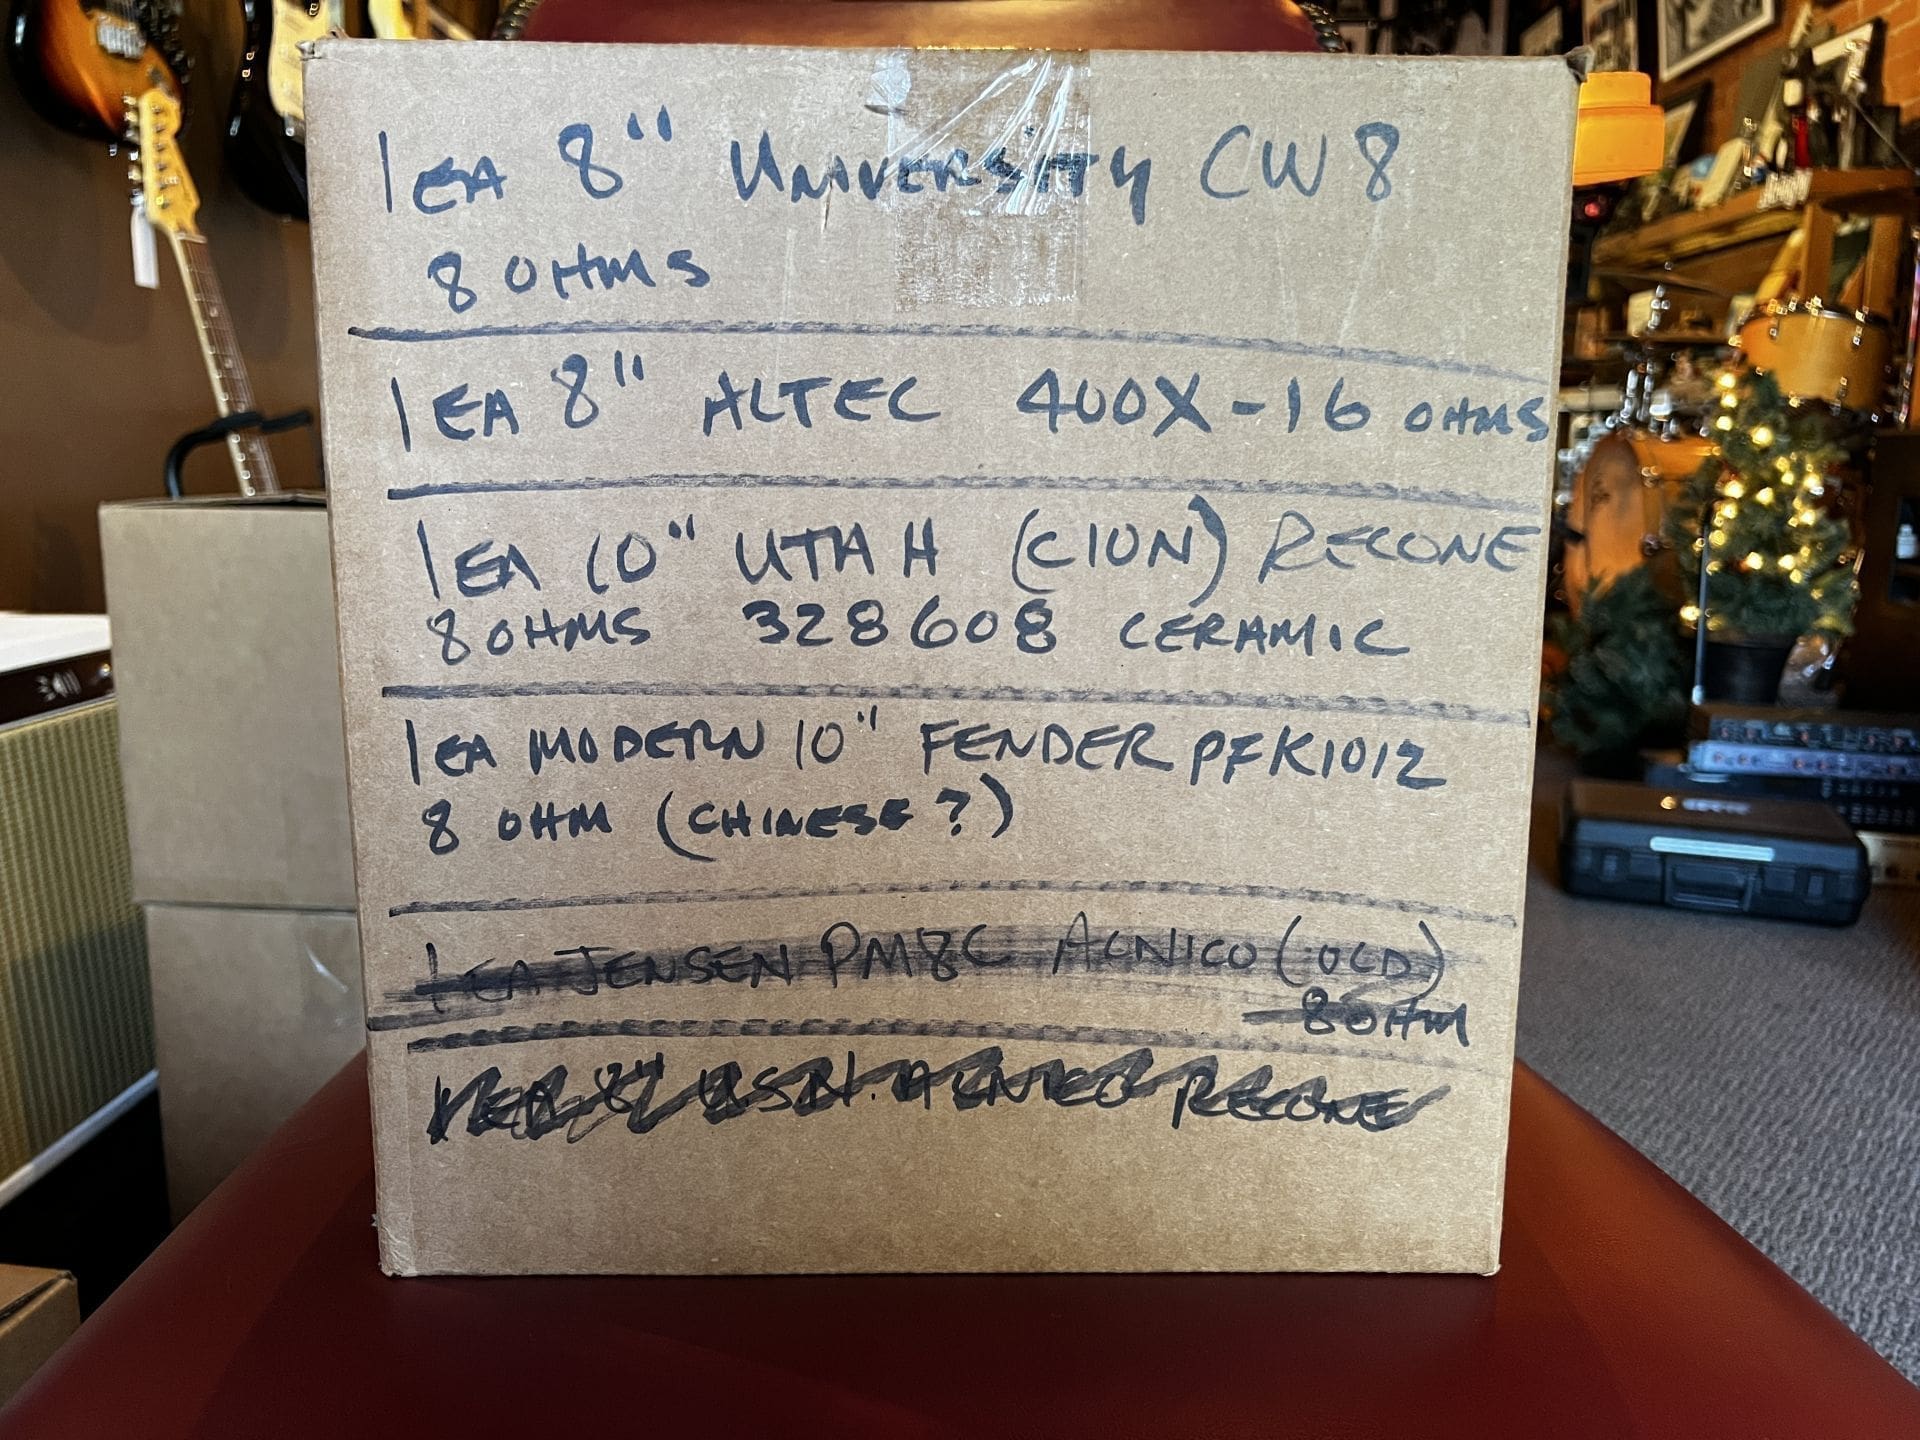 1 EA 8" UNIVERSITY CW8
8 OHMS
1 EA 8" ALTEC 400X-16 OHMS
1 EA 10" UTAH (C10N) RECONE
8 OHMS 328608 CERAMIC
1 EA MODERN 10" FENDER PFK1012
8 OHM (CHINESE?)
1 EA JENSEN PM8C ALNICO (OLD)
8 OHM
1 EA 8" ALNICO RECONE